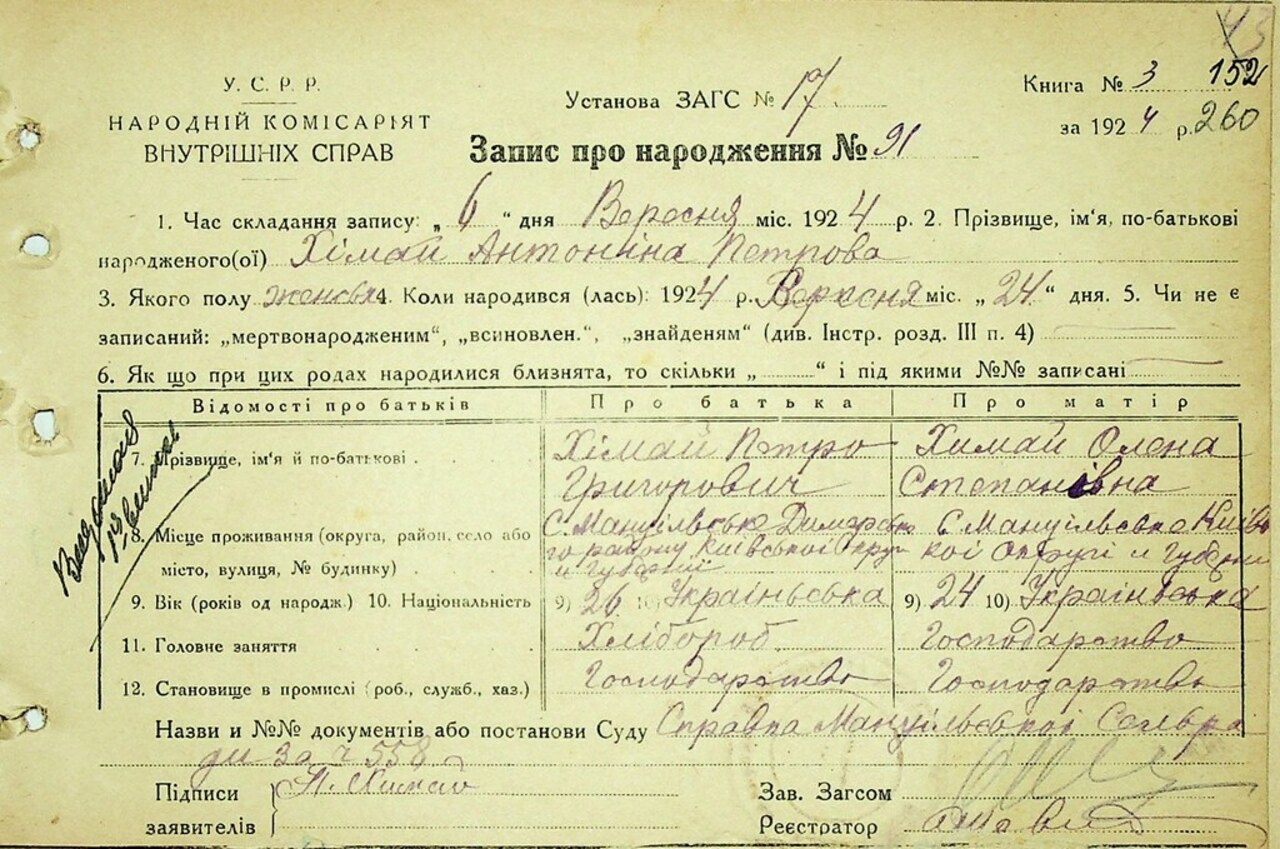 У. С. Р. Р.
НАРОДНІЙ КОМІСАРІЯТ
ВНУТРІШНІХ СПРАВ
Установа ЗАГС № 17
Книга № 3 152
за 1924 р. 260
Запис про народження № 91
1. Час складання запису: „ 6 “ дня Вересня міс. 1924 р. 2. Прізвище, ім'я, по-батькові
народженого(ої) Хімай Антоніна Петрова
3. Якого полу 4. Коли народився (лась): 1924 р. Вересня міс. „ 24 “ дня. 5. Чи не є
записаний: „мертвонародженим“, „всиновлен.“, „знайденям“ (див. Інстр. розд. III п. 4)
6. Як що при цих родах народилися близнята, то скільки „ “ і під якими №№ записані
Відомості про батьків Про батька Про матір
7. Прізвище, ім'я й по-батькові Хімай Петро Химай Олена
Григорович Степанівна
8. Місце проживання (округа, район, село або С. Мануільсько Димерсько С. Мануільсько Київ
місто, вулиця, № будинку) го району Київської округ и губернії кої округі и губерни
9. Вік (років од народж.) 10. Національність 9) 26 10) Українська 9) 24 10) Українська
11. Головне заняття Хлібороб Господарство
12. Становище в промислі (роб., служб., хаз.) Господарство Господарство
Назви и №№ документів або постанови Суду Справка Мануільської Сельра
ди за ч 558
Підписи
заявителів П. Химай
Зав. Загсом
Реєстратор